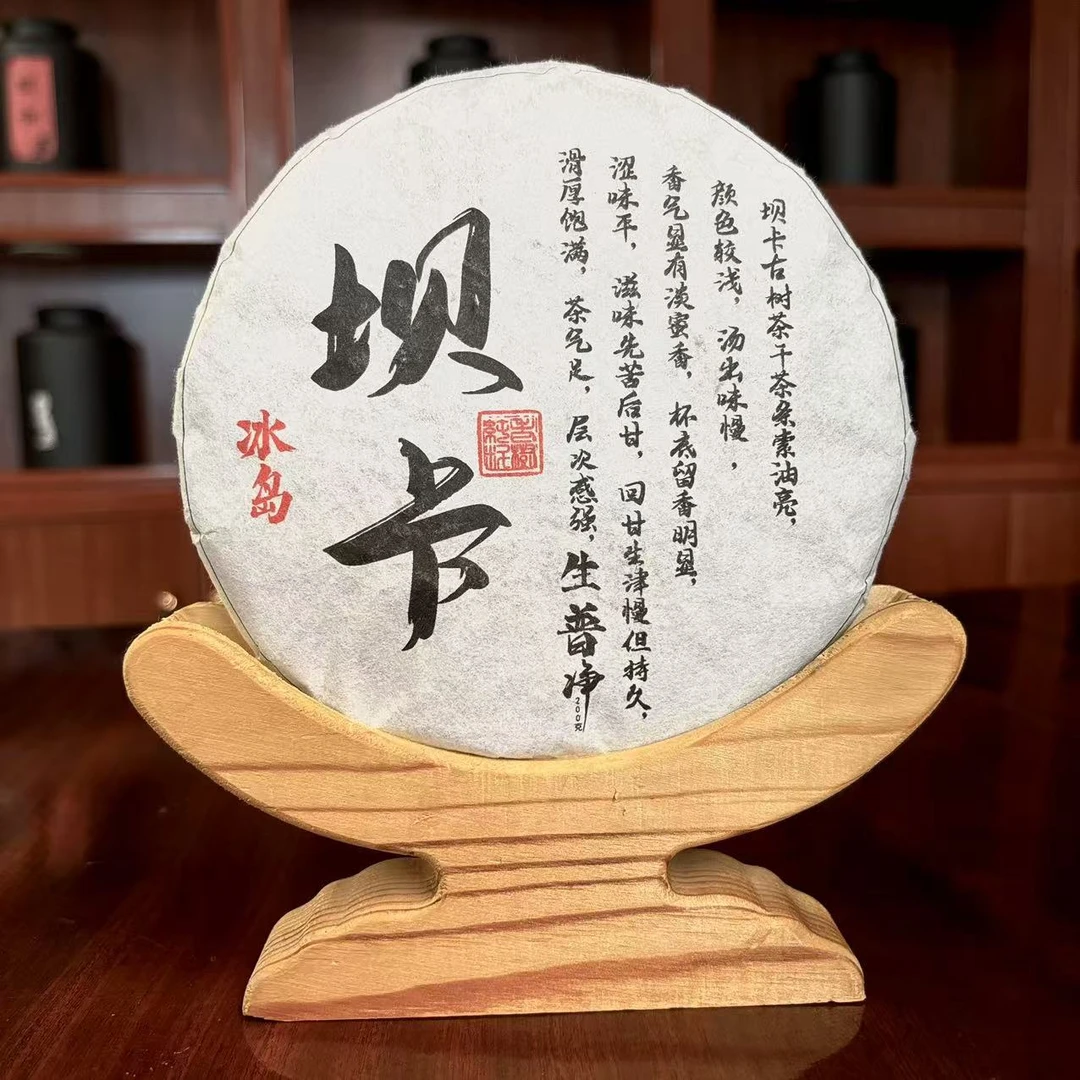 坝卡古树茶干茶条索油亮，
颜色较浅，汤出味慢，
香气显有淡蜜香，杯底留香明显，
涩味平，滋味先苦后甘，回甘生津慢但持久，
滑厚饱满，茶气足，层次感强，
生普
净200克
坝卡
冰岛